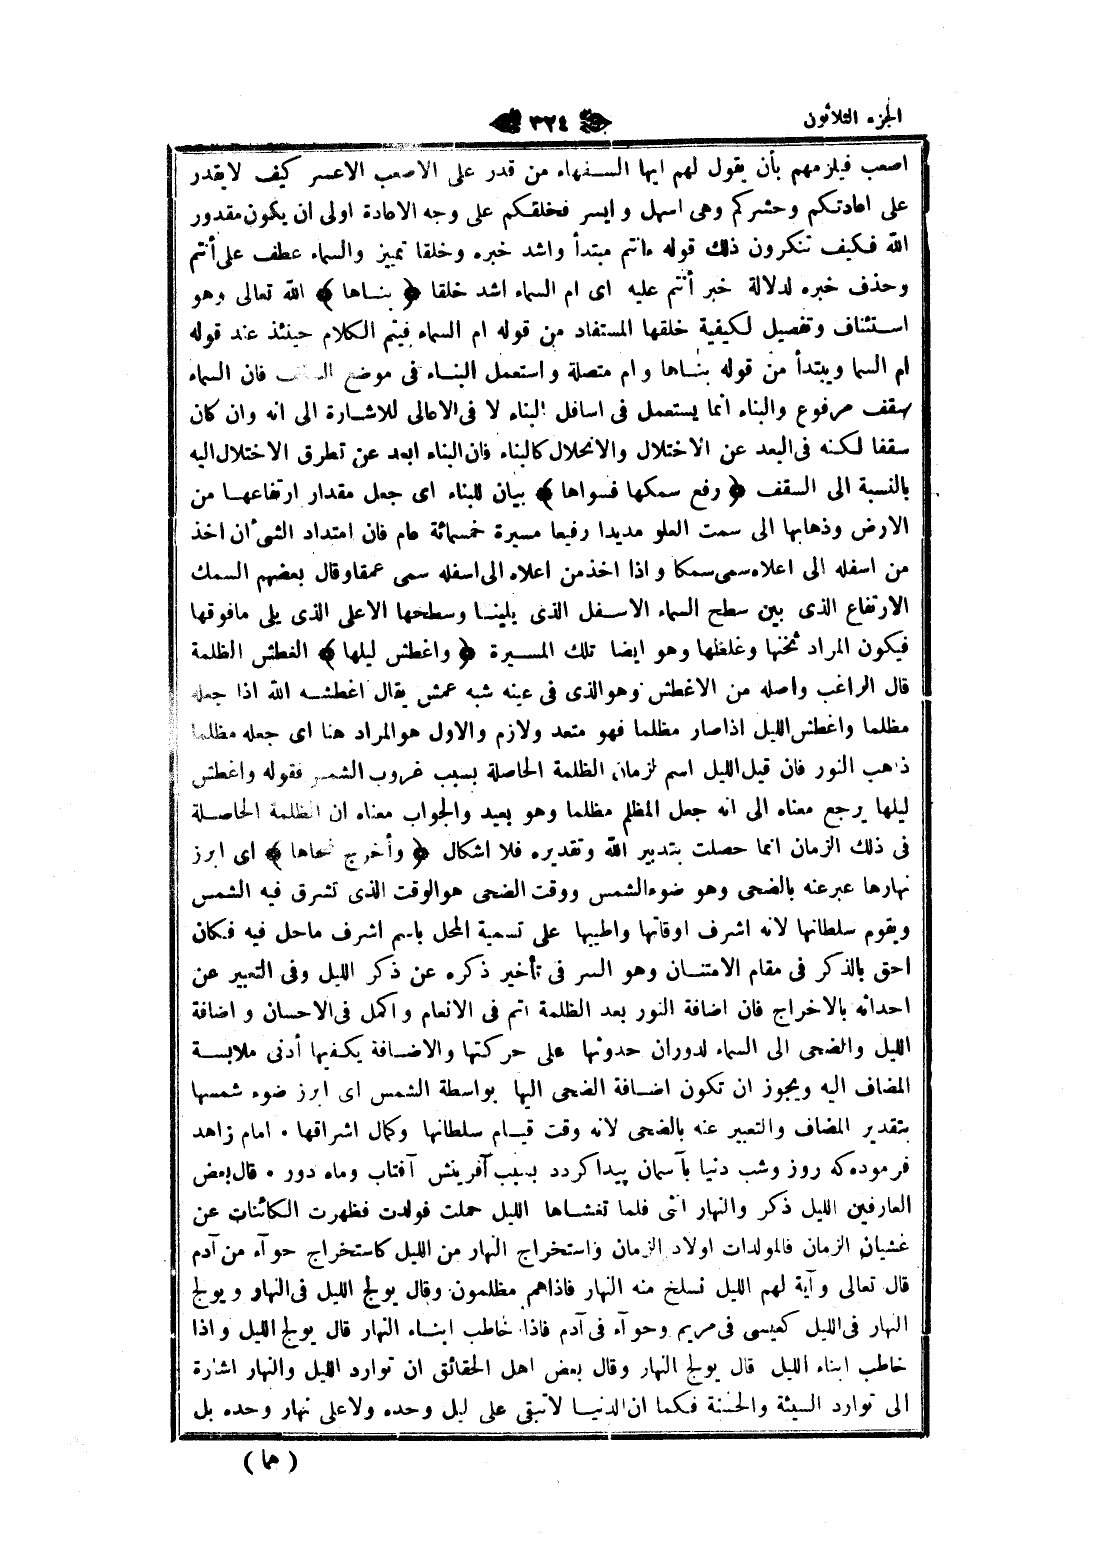 الجزء الثلاثون
٣٢٤
اصعب فيلزمهم بأن يقول لهم ايها السفهاء من قدر على الاصعب الاعسر كيف لايقدر
على اعادتكم وحشركم وهى اسهل وايسر فخلقكم على وجه الاعادة اولى ان يكون مقدور
الله فكيف تنكرون ذلك قوله ءانتم مبتدأ واشد خبره وخلقا تمييز والسماء عطف على أنتم
وحذف خبره لدلالة خبر أنتم عليه اى ام السماء اشد خلقا ﴿ بناها ﴾ الله تعالى وهو
استئناف وتفصيل لكيفية خلقها المستفاد من قوله ام السماء فيتم الكلام حينئذ عند قوله
ام السما ويبتدأ من قوله بناها وام متصلة واستعمل البناء فى موضع السقف فان السماء
سقف مرفوع والبناء انما يستعمل فى اسافل البناء لا فى الاعالى للاشارة الى انه وان كان
سقفا لكنه فى البعد عن الاختلال والانحلال كالبناء فان البناء ابعد عن تطرق الاختلال اليه
بالنسبة الى السقف ﴿ رفع سمكها فسواها ﴾ بيان للبناء اى جعل مقدار ارتفاعها من
الارض وذهابها الى سمت العلو مديدا رفيعا مسيرة خمسمائة عام فان امتداد الشىء ان اخذ
من اسفله الى اعلاه سمى سمكا واذا اخذ من اعلاه الى اسفله سمى عمقا وقال بعضهم السمك
الارتفاع الذى بين سطح السماء الاسفل الذى يلينا وسطحها الاعلى الذى يلى مافوقها
فيكون المراد ثخنها وغلظها وهو ايضا تلك المسيرة ﴿ واغطش ليلها ﴾ الغطش الظلمة
قال الراغب واصله من الاغطش وهو الذى فى عينه شبه عمش يقال اغطشه الله اذا جعله
مظلما واغطش الليل اذا صار مظلما فهو متعد ولازم والاول هو المراد هنا اى جعله مظلما
ذهب النور فان قيل الليل اسم لزمان الظلمة الحاصلة بسبب غروب الشمس فقوله واغطش
ليلها يرجع معناه الى انه جعل المظلم مظلما وهو بعيد والجواب معناه ان الظلمة الحاصلة
فى ذلك الزمان انما حصلت بتدبير الله وتقديره فلا اشكال ﴿ وأخرج ضحاها ﴾ اى ابرز
نهارها عبر عنه بالضحى وهو ضوء الشمس ووقت الضحى هو الوقت الذى تشرق فيه الشمس
ويقوم سلطانها لانه اشرف اوقاتها واطيبها على تسمية المحل باسم اشرف ماحل فيه فكان
احق بالذكر فى مقام الامتنان وهو السر فى تأخير ذكره عن ذكر الليل وفى التعبير عن
احداثه بالاخراج فان اضافة النور بعد الظلمة اتم فى الانعام واكمل فى الاحسان واضافة
الليل والضحى الى السماء لدوران حدوثها على حركتها والاضافة يكفيها أدنى ملابسة
المضاف اليه ويجوز ان تكون اضافة الضحى اليها بواسطة الشمس اى ابرز ضوء شمسها
بتقدير المضاف والتعبير عنه بالضحى لانه وقت قيام سلطانها وكمال اشراقها . امام زاهد
فرموده كه روز وشب دنيا بآسمان پيدا كردد بسبب آفرينش آفتاب وماه دور . قال بعض
العارفين الليل ذكر والنهار انثى فلما تغشاها الليل حملت فولدت فظهرت الكائنات عن
غشيان الزمان فالمولدات اولاد الزمان واستخراج النهار من الليل كاستخراج حوآء من آدم
قال تعالى وآية لهم الليل نسلخ منه النهار فاذاهم مظلمون وقال يولج الليل فى النهار ويولج
النهار فى الليل كعيسى فى مريم وحوآء فى آدم فاذا خاطب ابناء النهار قال يولج الليل واذا
خاطب ابناء الليل قال يولج النهار وقال بعض اهل الحقائق ان توارد الليل والنهار اشارة
الى توارد السيئة والحسنة فكما ان الدنيا لاتبقى على ليل وحده ولاعلى نهار وحده بل
( هما )